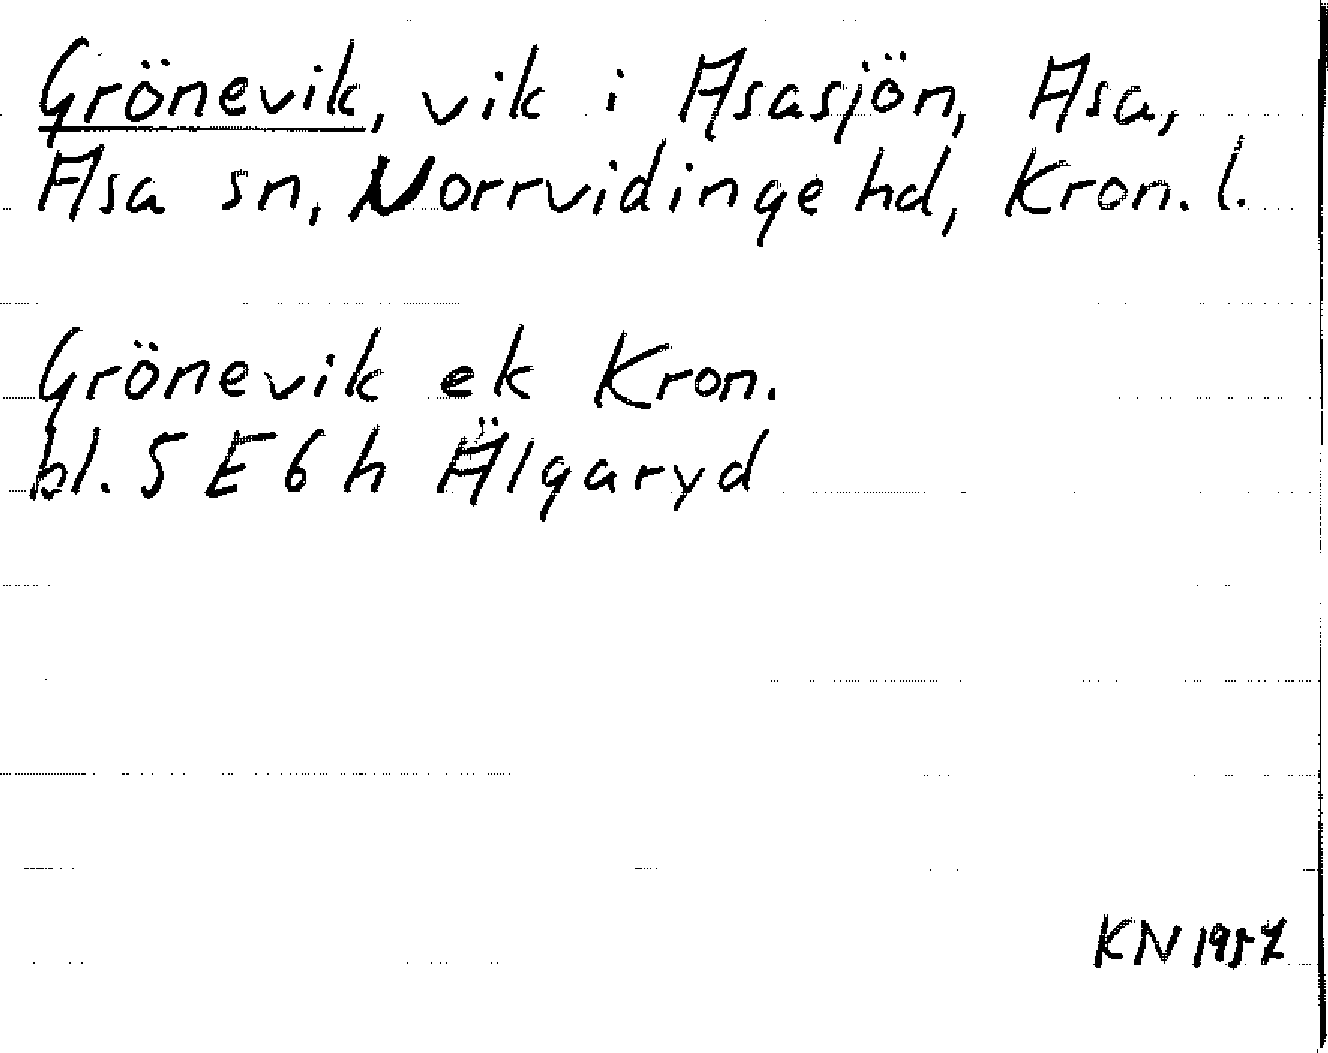 Grönevik, vik i Asasjön, Asa,
Asa sn, Norrvidinge hd, Kron. l.
Grönevik ek Kron.
bl. 5 E 6 h Älgaryd
KN 1957